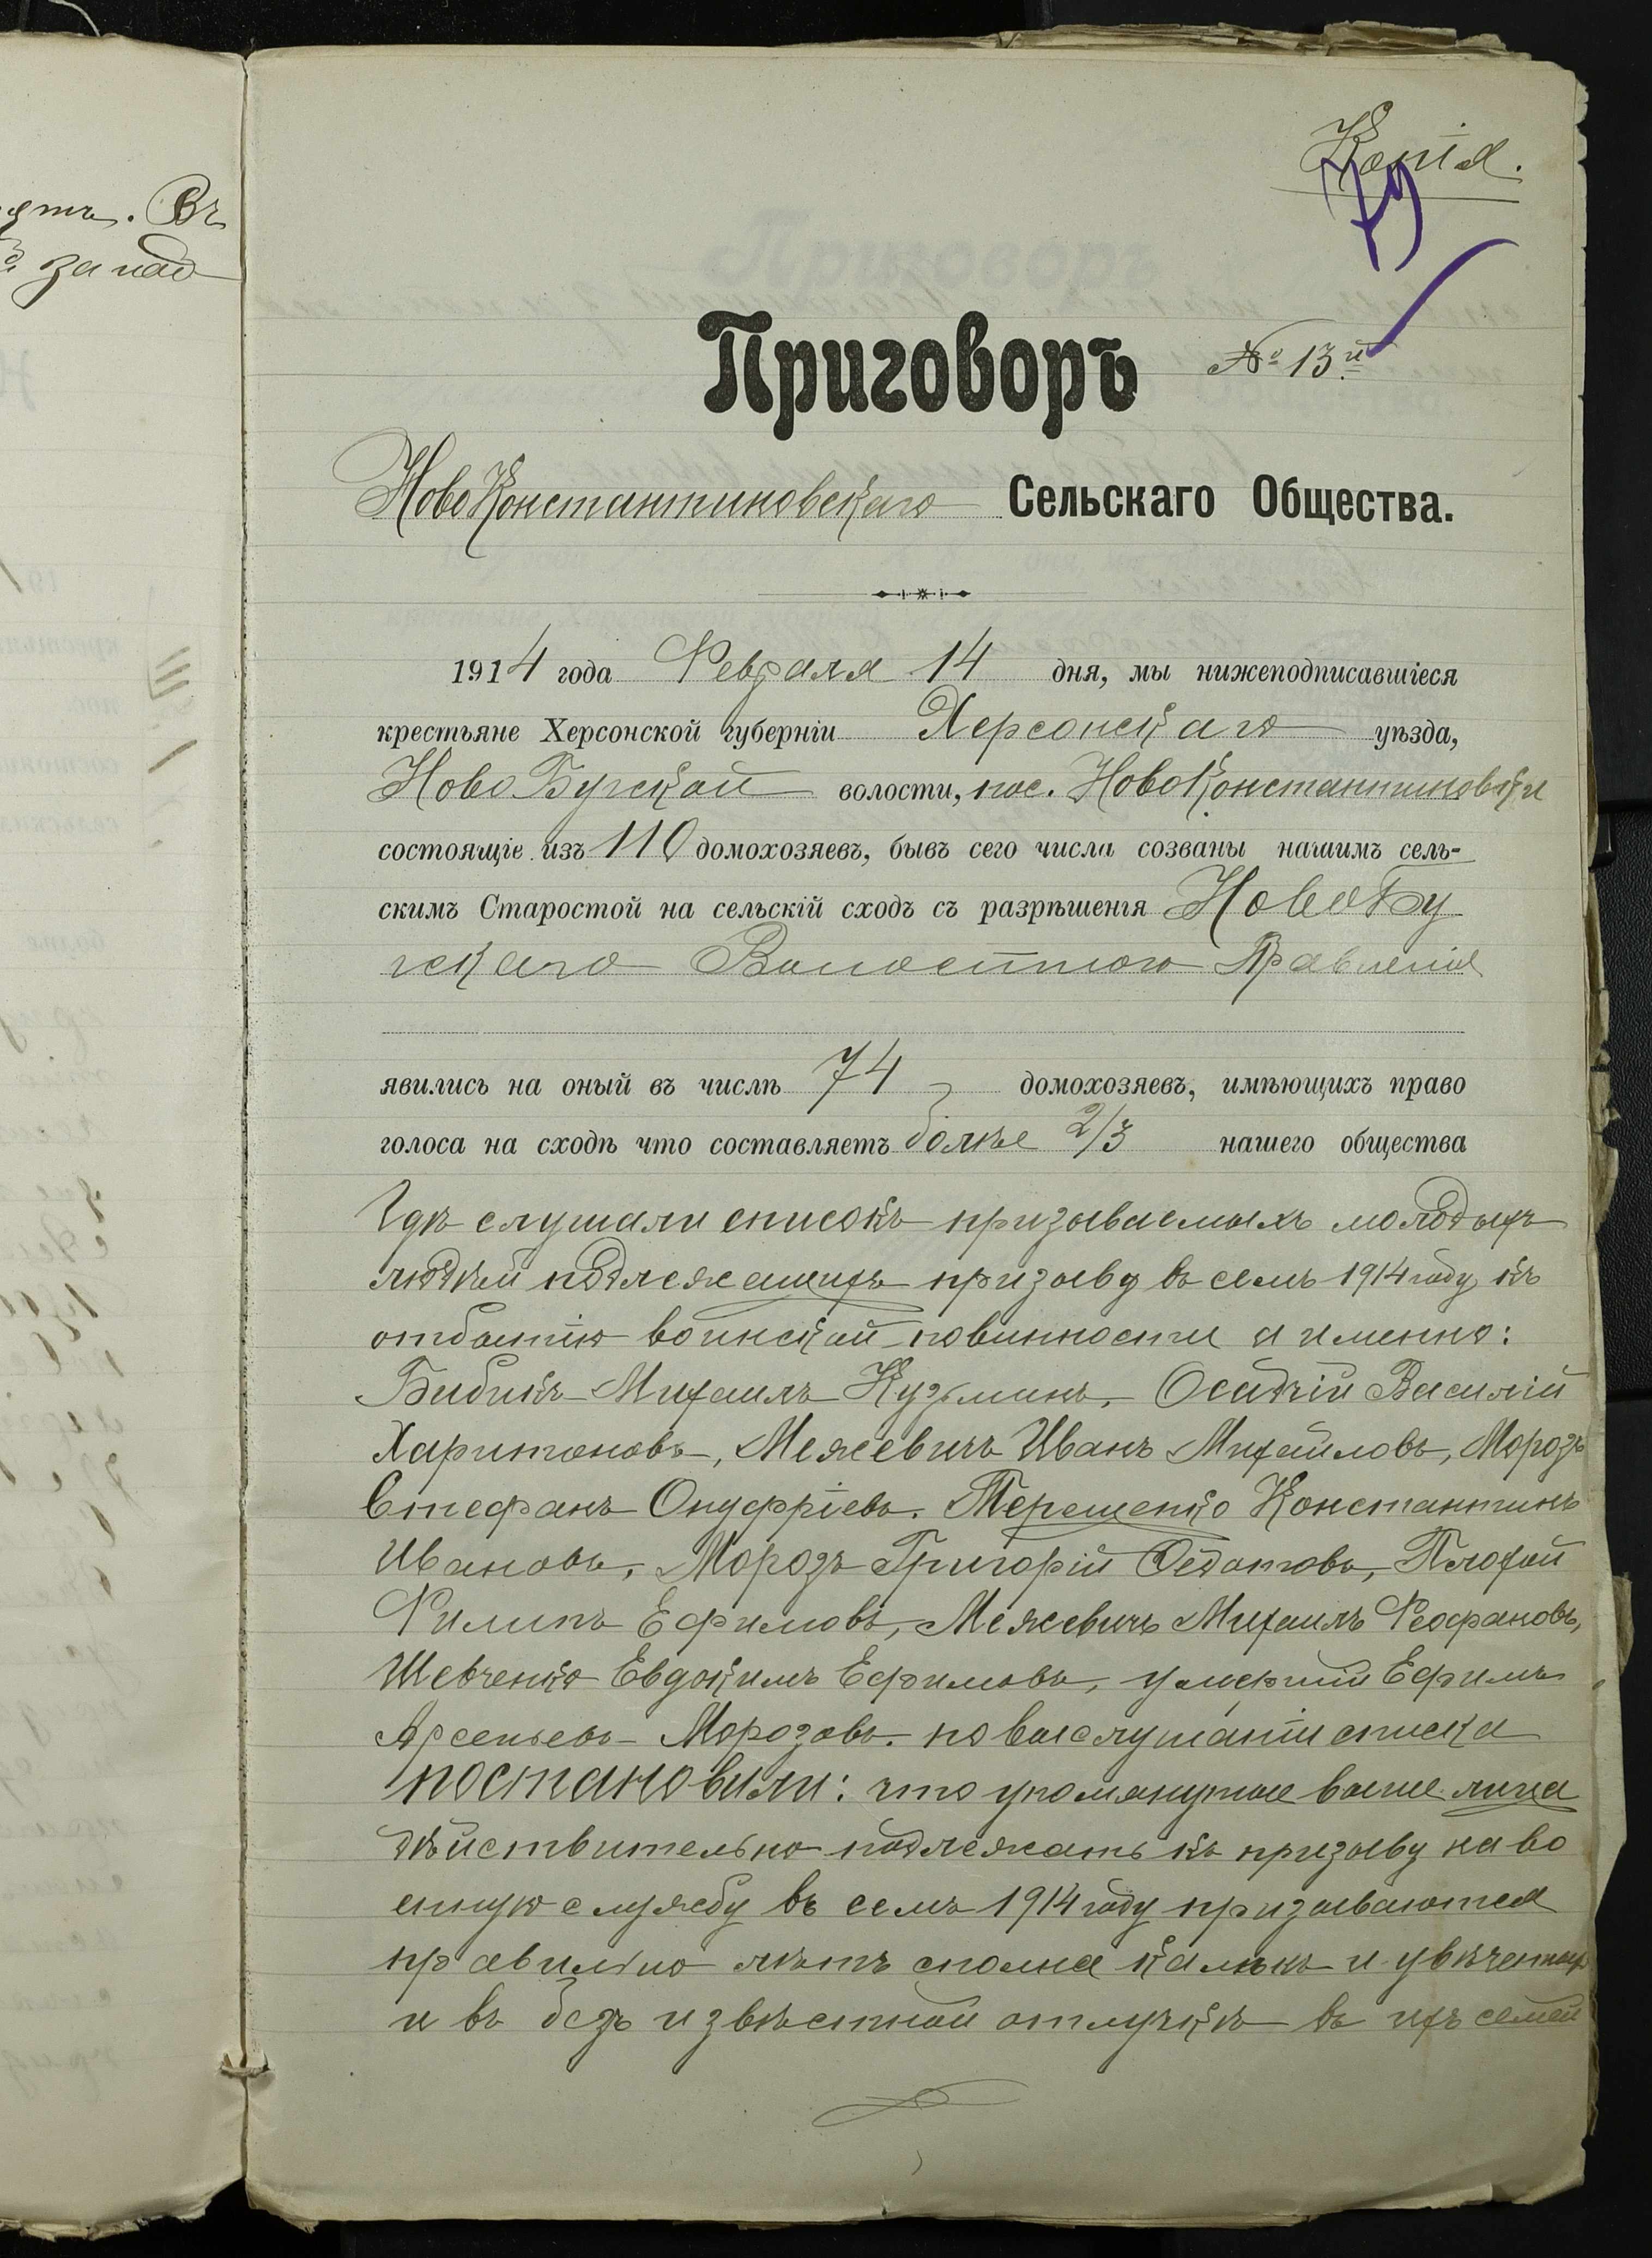 Копія.
79
Приговоръ № 13й
НовоКонстантиновскаго Сельскаго Общества.
ятъ. Въ
запад
1914 года Февраля 14 дня, мы нижеподписавшіеся
крестьяне Херсонской губерніи Херсонскаго уѣзда,
НовоБугской волости, пос. НовоКонстантиновки
состоящіе изъ 110 домохозяевъ, бывъ сего числа созваны нашимъ сель-
скимъ Старостой на сельскій сходъ съ разрѣшенія НовоБу
гскаго Волостного Правленія
явились на оный въ числѣ 74 домохозяевъ, имѣющихъ право
голоса на сходѣ что составляетъ болѣе 2/3 нашего общества
Гдѣ слушали списокъ призываемыхъ молодыхъ
людѣй подлежащихъ призыву въ семъ 1914 году къ
отбытію воинской повинности а именно:
Бибикъ Михаилъ Кузьминъ, Осадчій Василій
Харитоновъ, Межевичъ Иванъ Михайловъ, Морозъ
Стефанъ Онуфріевъ. Терещенко Константинъ
Ивановъ, Морозъ Григорій Федотовъ, Плохой
Филипъ Ефимовъ, Межевичъ Михаилъ Феофановъ,
Шевченко Евдокимъ Ефимовъ, умершій Ефимъ
Арсеньевъ Морозовъ. по выслушаніи списка
постановили: что упомянутые выше лица
дѣйствительно подлежатъ къ призыву на во
енную службу въ семъ 1914 году призываются
правильно лѣтъ сполна калѣкъ и увѣчныхъ
и въ безъ извѣстной отлучкѣ въ ихъ семей